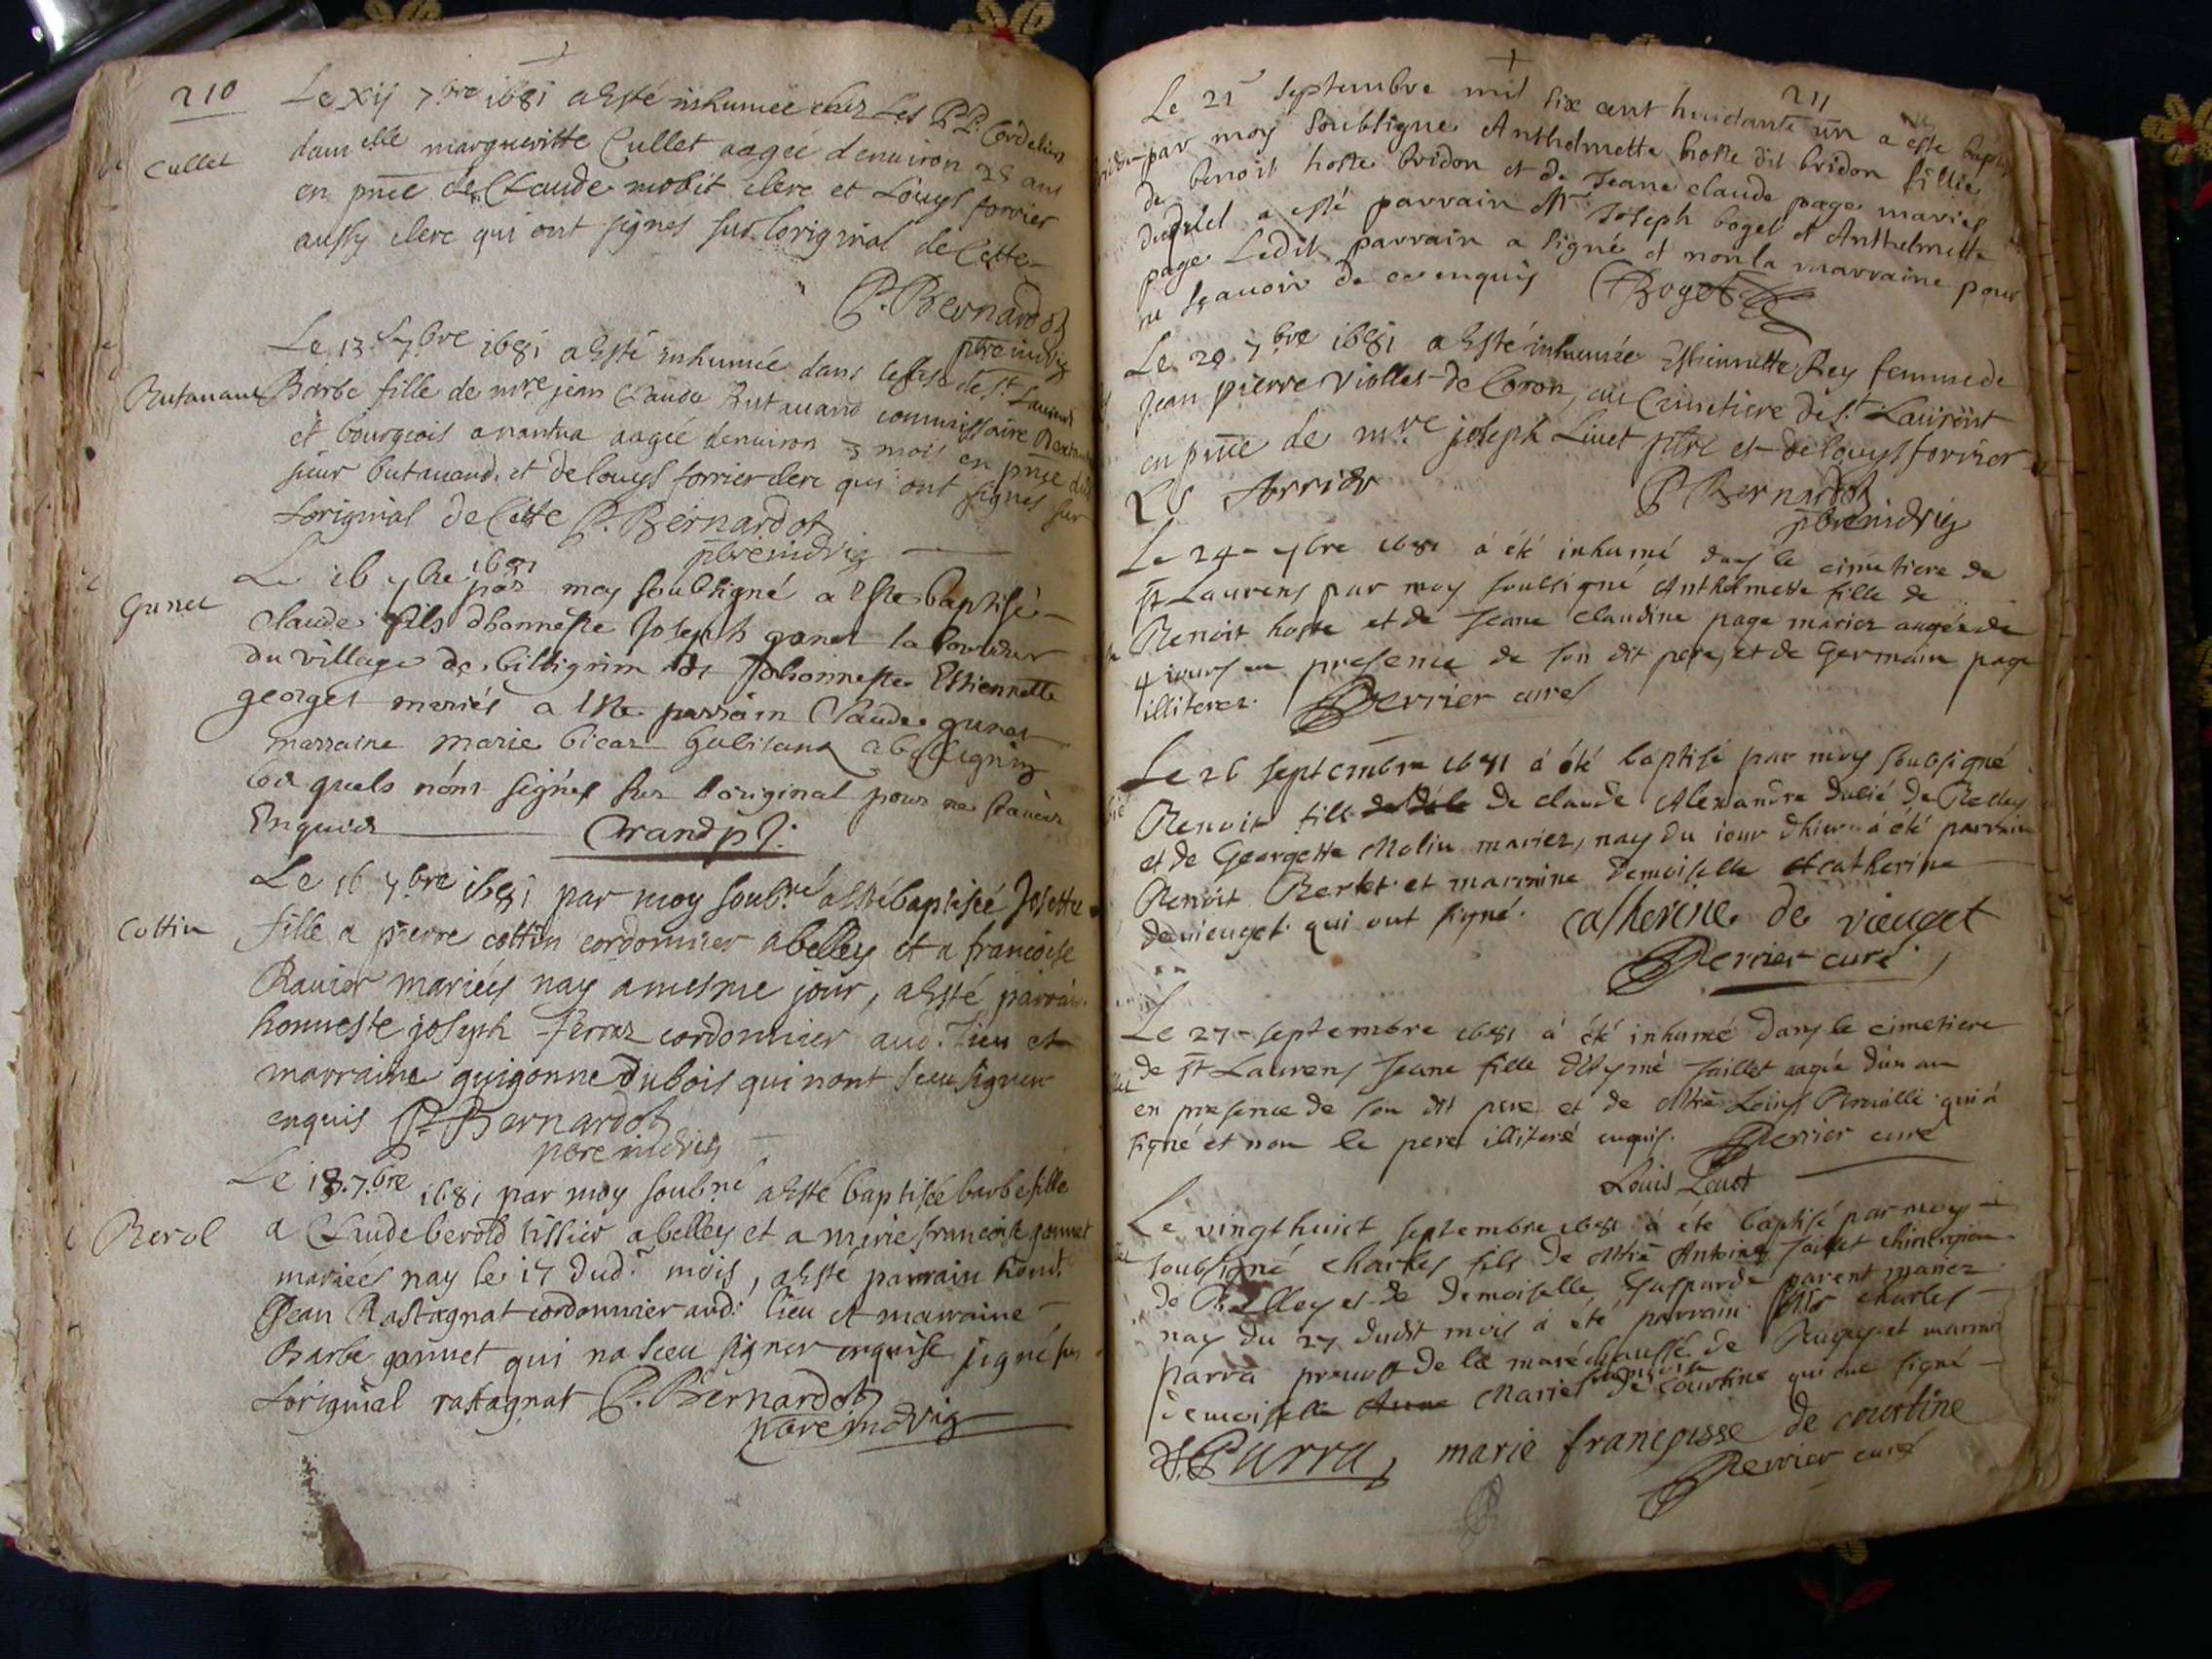 210
Le xij 7bre 1681 a esté inhumée chez Les PP. Cordeliers
Cullet
damelle margueritte Cullet aagée denuiron 28 ans
en pnce de Claude mobit clerc et Louys forrier
aussy clerc qui ont signes sur Loriginal de Cette
P. Bernardot
pbre indvig
Le 13e 7bre 1681 a esté inhumée dans leglise de St Laurent
Rutauand Barbe fille de mre jean Claude Butauand commissaire
et bourgeois a nantua aagée denuiron 3 mois en pnce dud
sieur butauand et de louys forrier clerc qui ont signes sur
Loriginal de Cette P. Bernardot
pbre indvig
Le 16 7bre 1681 par moy soubsigné a este baptisé
Gunet
Claude fils dhonneste Joseph gonet laboureur
du village de billignin et dhonneste Estiennette
georget mariés a este parrain Claude gunet
marraine marie bicaz habitans a billignin
lesquels nont signés sur Loriginal pour ne scauoir
Enquis Crand pt.
Le 16 7bre 1681 par moy soubné a esté baptisée Josette
Cottin
fille a pierre cottin cordonnier a belley et a francoise
Rauier mariés nay a mesme jour, a esté parrain
honneste joseph ferraz cordonnier aud. Lieu et
marraine guigonne Dubois qui nont sceu signer
enquis P. Bernardot
pbre indvig
Le 18. 7bre 1681 par moy soubné a esté baptisée barbe fille
Berol
a Claude berold tissier a belley et a marie francoise gonnet
mariés nay le 17 dud. mois, a esté parrain honn.
Jean Rastagnat cordonnier aud. lieu et marraine
Barbe gonnet qui na sceu signer enquise signé sur
Loriginal rastagnat P. Bernardot
pbre indvig
211
Le 21 septembre mil six cent huictante un a este baptisé
par moy soubsigné Anthelmette hoste dit bridon fillie
de benoit hoste bridon et de Jeane claude page mariés
duquel a esté parrain Mr Joseph bogel et Anthelmette
page Ledit parrain a signé et non la marraine pour
ne sçauoir de ce enquis Boget
Le 29 7bre 1681 a esté inhumée Estiennette Rey femme de
Jean pierre Viollet de Coron, au Cimetiere de St Laurent
en pnce de mre joseph Liuet pbre et de louys forrier
LS forrier P Bernardot
pbre indvig
Le 24 7bre 1681 á été inhumé dans le cimetiere de
St Laurens par moy soubsigné Anthelmette fille de
Benoit hoste et de Jeane claudine page mariez aagée de
4 iours en presence de son dit pere, et de Germain page
illiterez. Perrier curé
Le 26 septembre 1681 á été baptisé par moy soubsigné
Benoit fils de claude Alexandre dulié de Belley
et de Georgette Molin mariez, nay du iour dhier á été parrain
Benoit Berlet et marraine Demoiselle catherine
de vieuget qui ont signé. catherine de vieuget
Perrier curé
Le 27 septembre 1681 á été inhumé dans le cimetiere
de St Laurens Jeane fille dAymé Jaillet aagée dun an
en presence de son dit pere et de Mtre Louis qui á
signé et non le pere illiteré enquis. Perrier curé
Louis
Le vingthuict septembre 1681 á été baptisé par moy
soubsigné Charles fils de Mtre Antoine Jaillet chirurgien
de Belley et de Demoiselle Gasparde parent mariez
nay du 27 dudit mois á été parrain Mr charles
parra preuost de la maréchaussé de Bugey et marraine
demoiselle Marie françoise de courtine qui ont signé
Parra, marie françoisse de courtine
Perrier curé